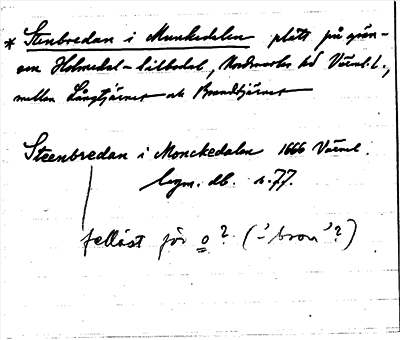 * Stenbredan i Munkedalen plats på grän-
sen Holmedal-Silbodal, Nordmarks hd Värml. l.,
mellan Långtjärnet och Brandtjärnet
Steenbredan i Monckedalen 1666 Värml.
legm. db. s. 77.
felläst för o? (-'bron'?)